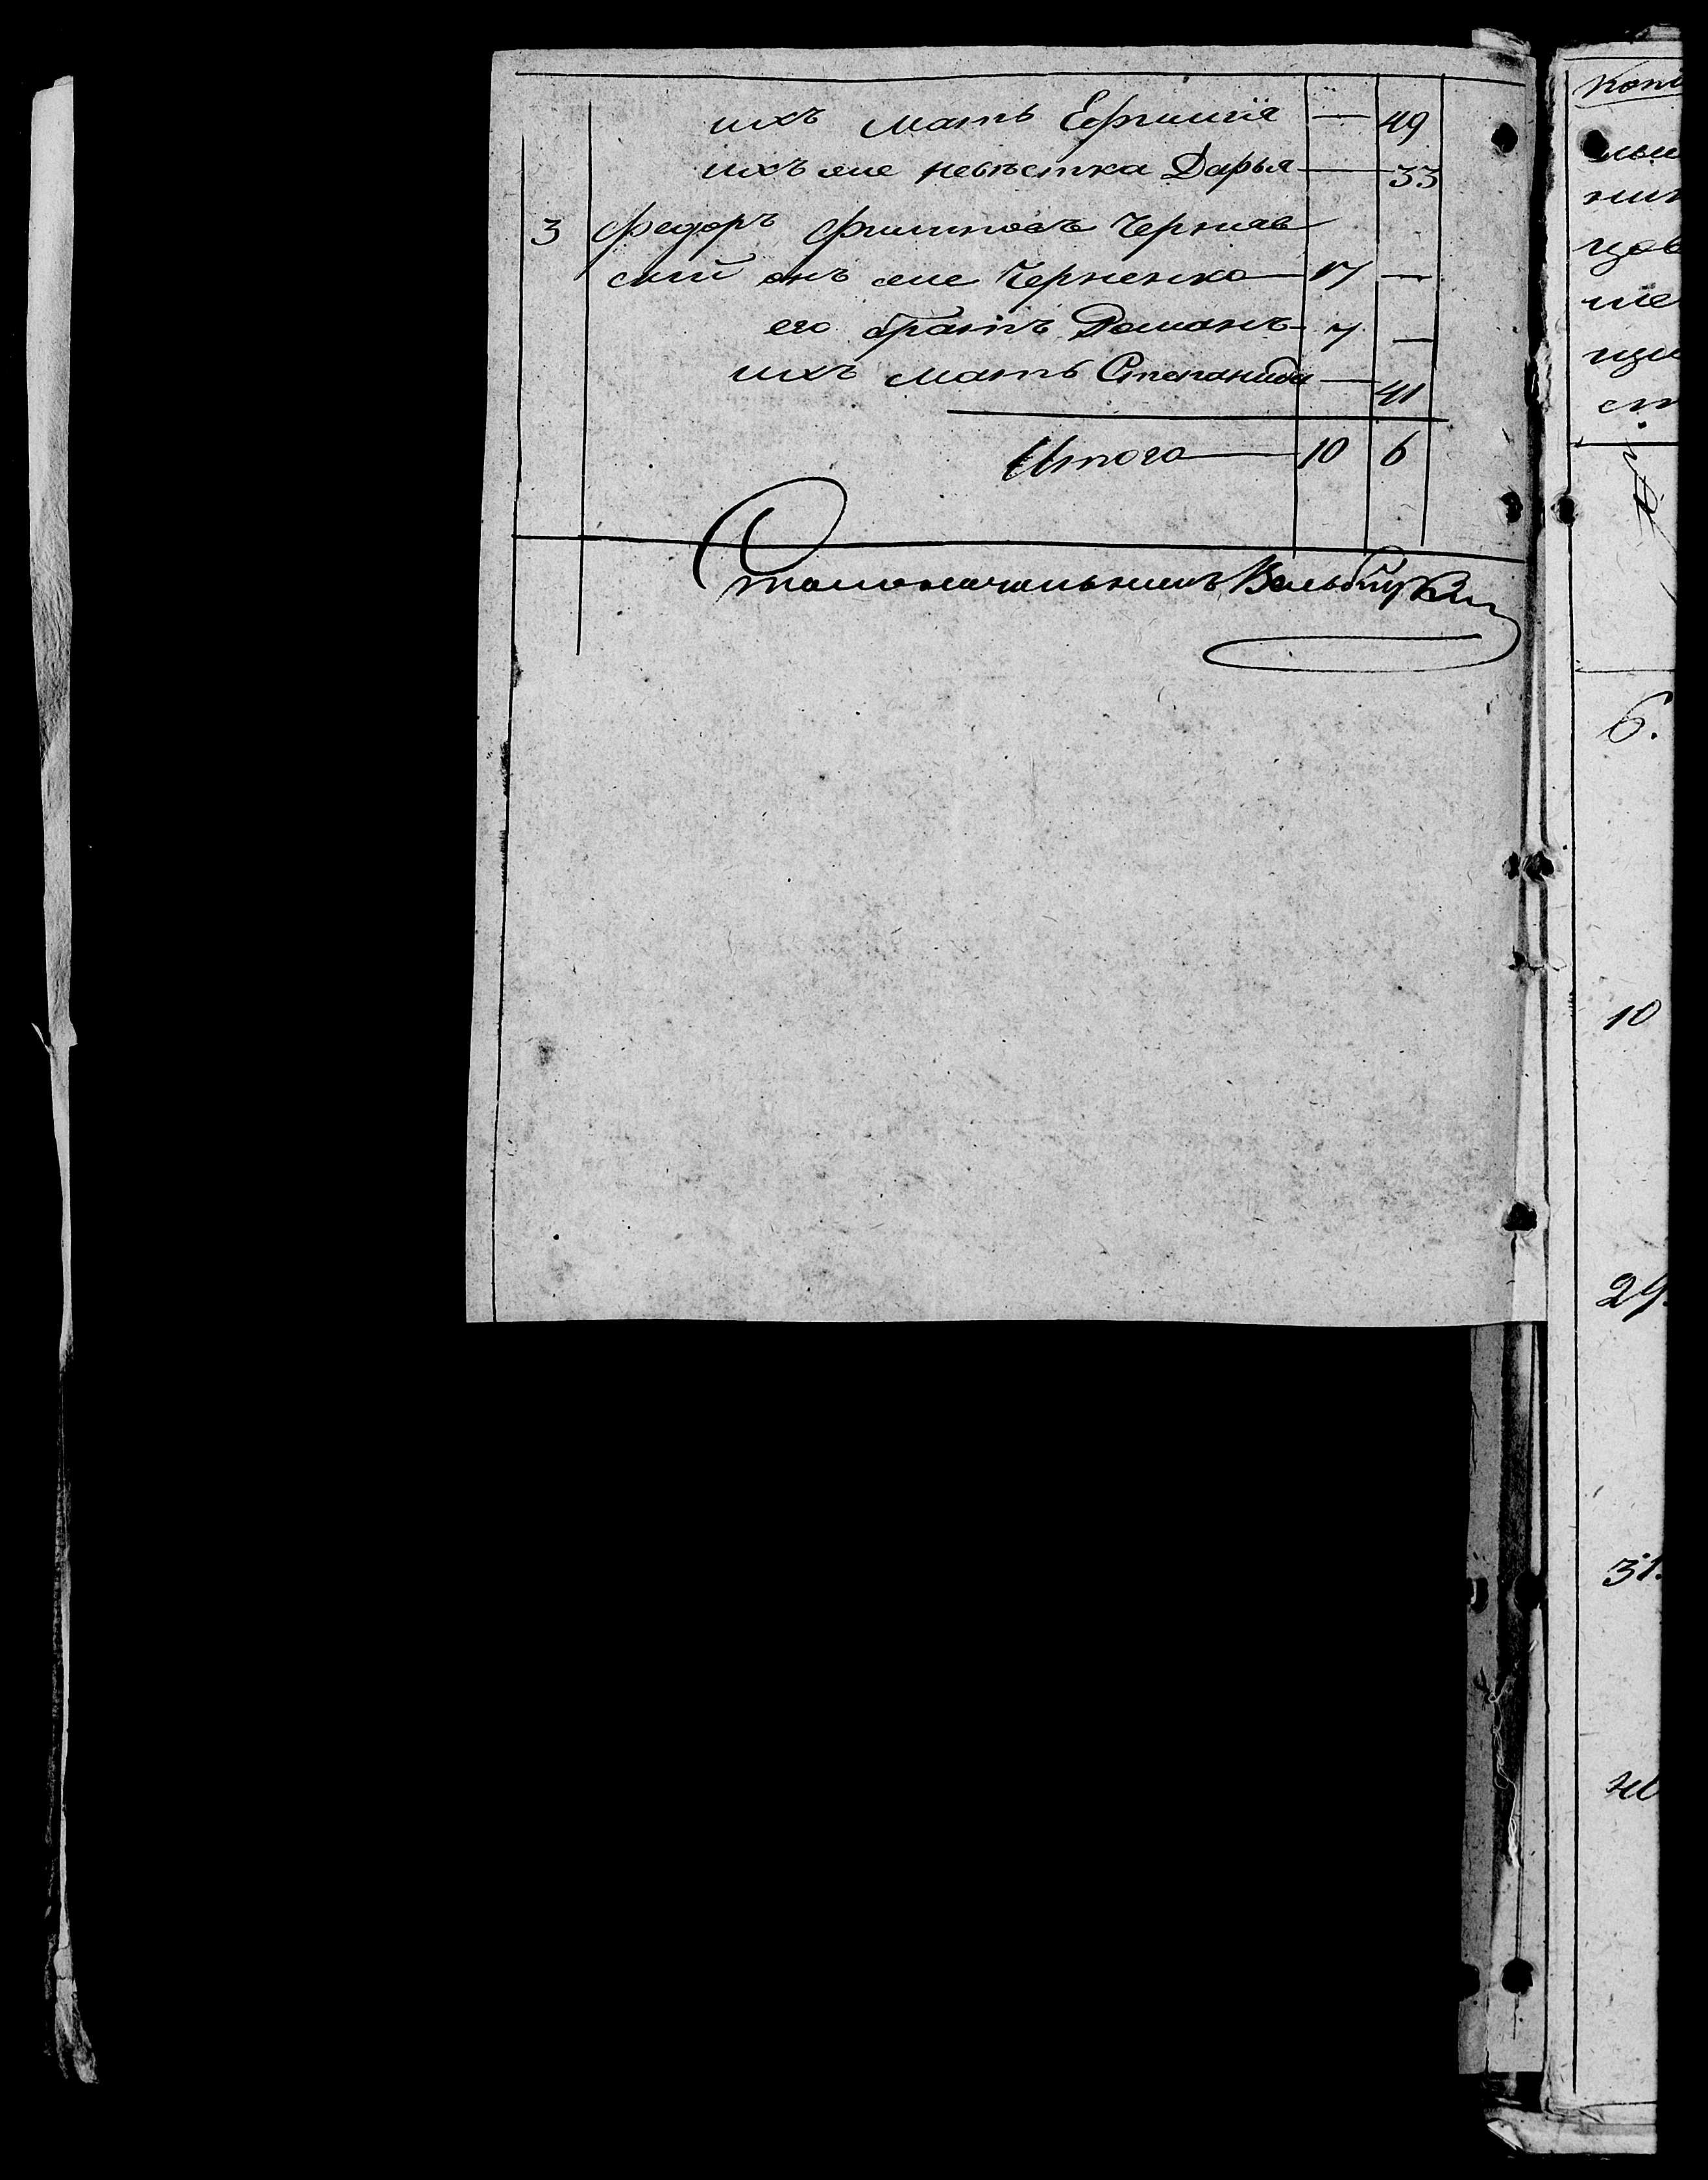 ихъ мать Ефимія — 49
ихъ же невѣстка Дарья — 33
3 Федоръ Филиповъ Черняв
скій онъ же Черненко — 17 —
его братъ Романъ — 7 —
ихъ мать Степанида — 41
Итого — 10 6
Столоначальникъ
6.
10
29.
31.